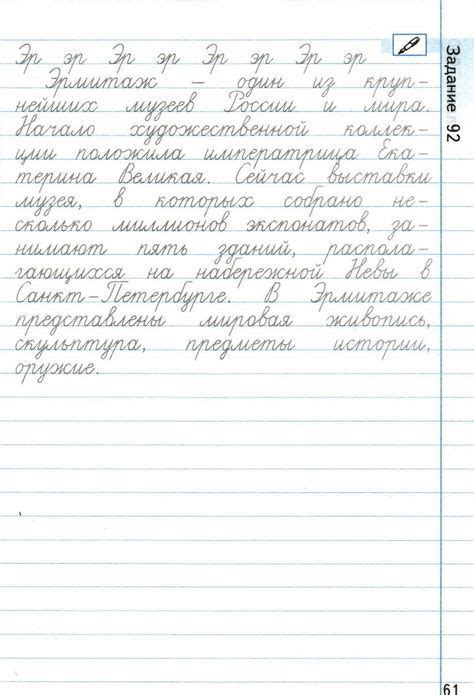 Эр эр Эр эр Эр эр Эр эр
Эрмитаж – один из круп-
нейших музеев России и мира.
Начало художественной коллек-
ции положила императрица Ека-
терина Великая. Сейчас выставки
музея, в которых собрано не-
сколько миллионов экспонатов, за-
нимают пять зданий, распола-
гающихся на набережной Невы в
Санкт-Петербурге. В Эрмитаже
представлены мировая живопись,
скульптура, предметы истории,
оружие.
Задание 92
61